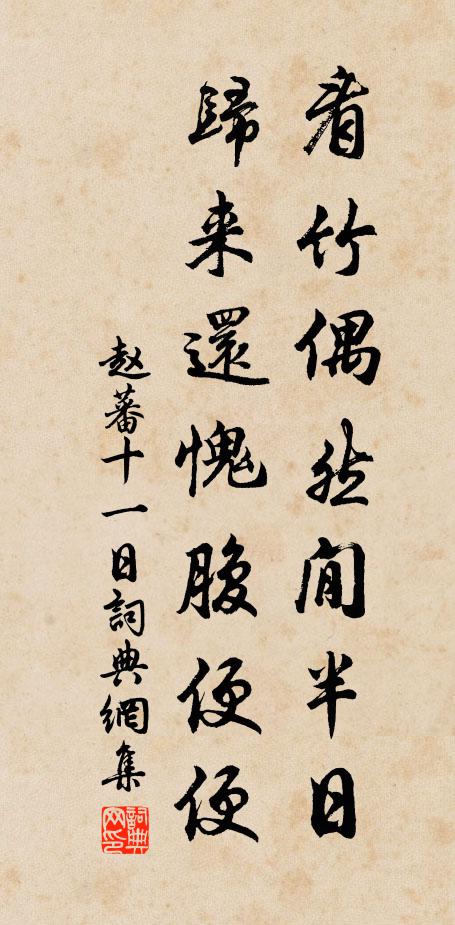 看竹偶然閒半日
歸来還愧腹便便
赵蕃十一日詞典網集
詞典網印